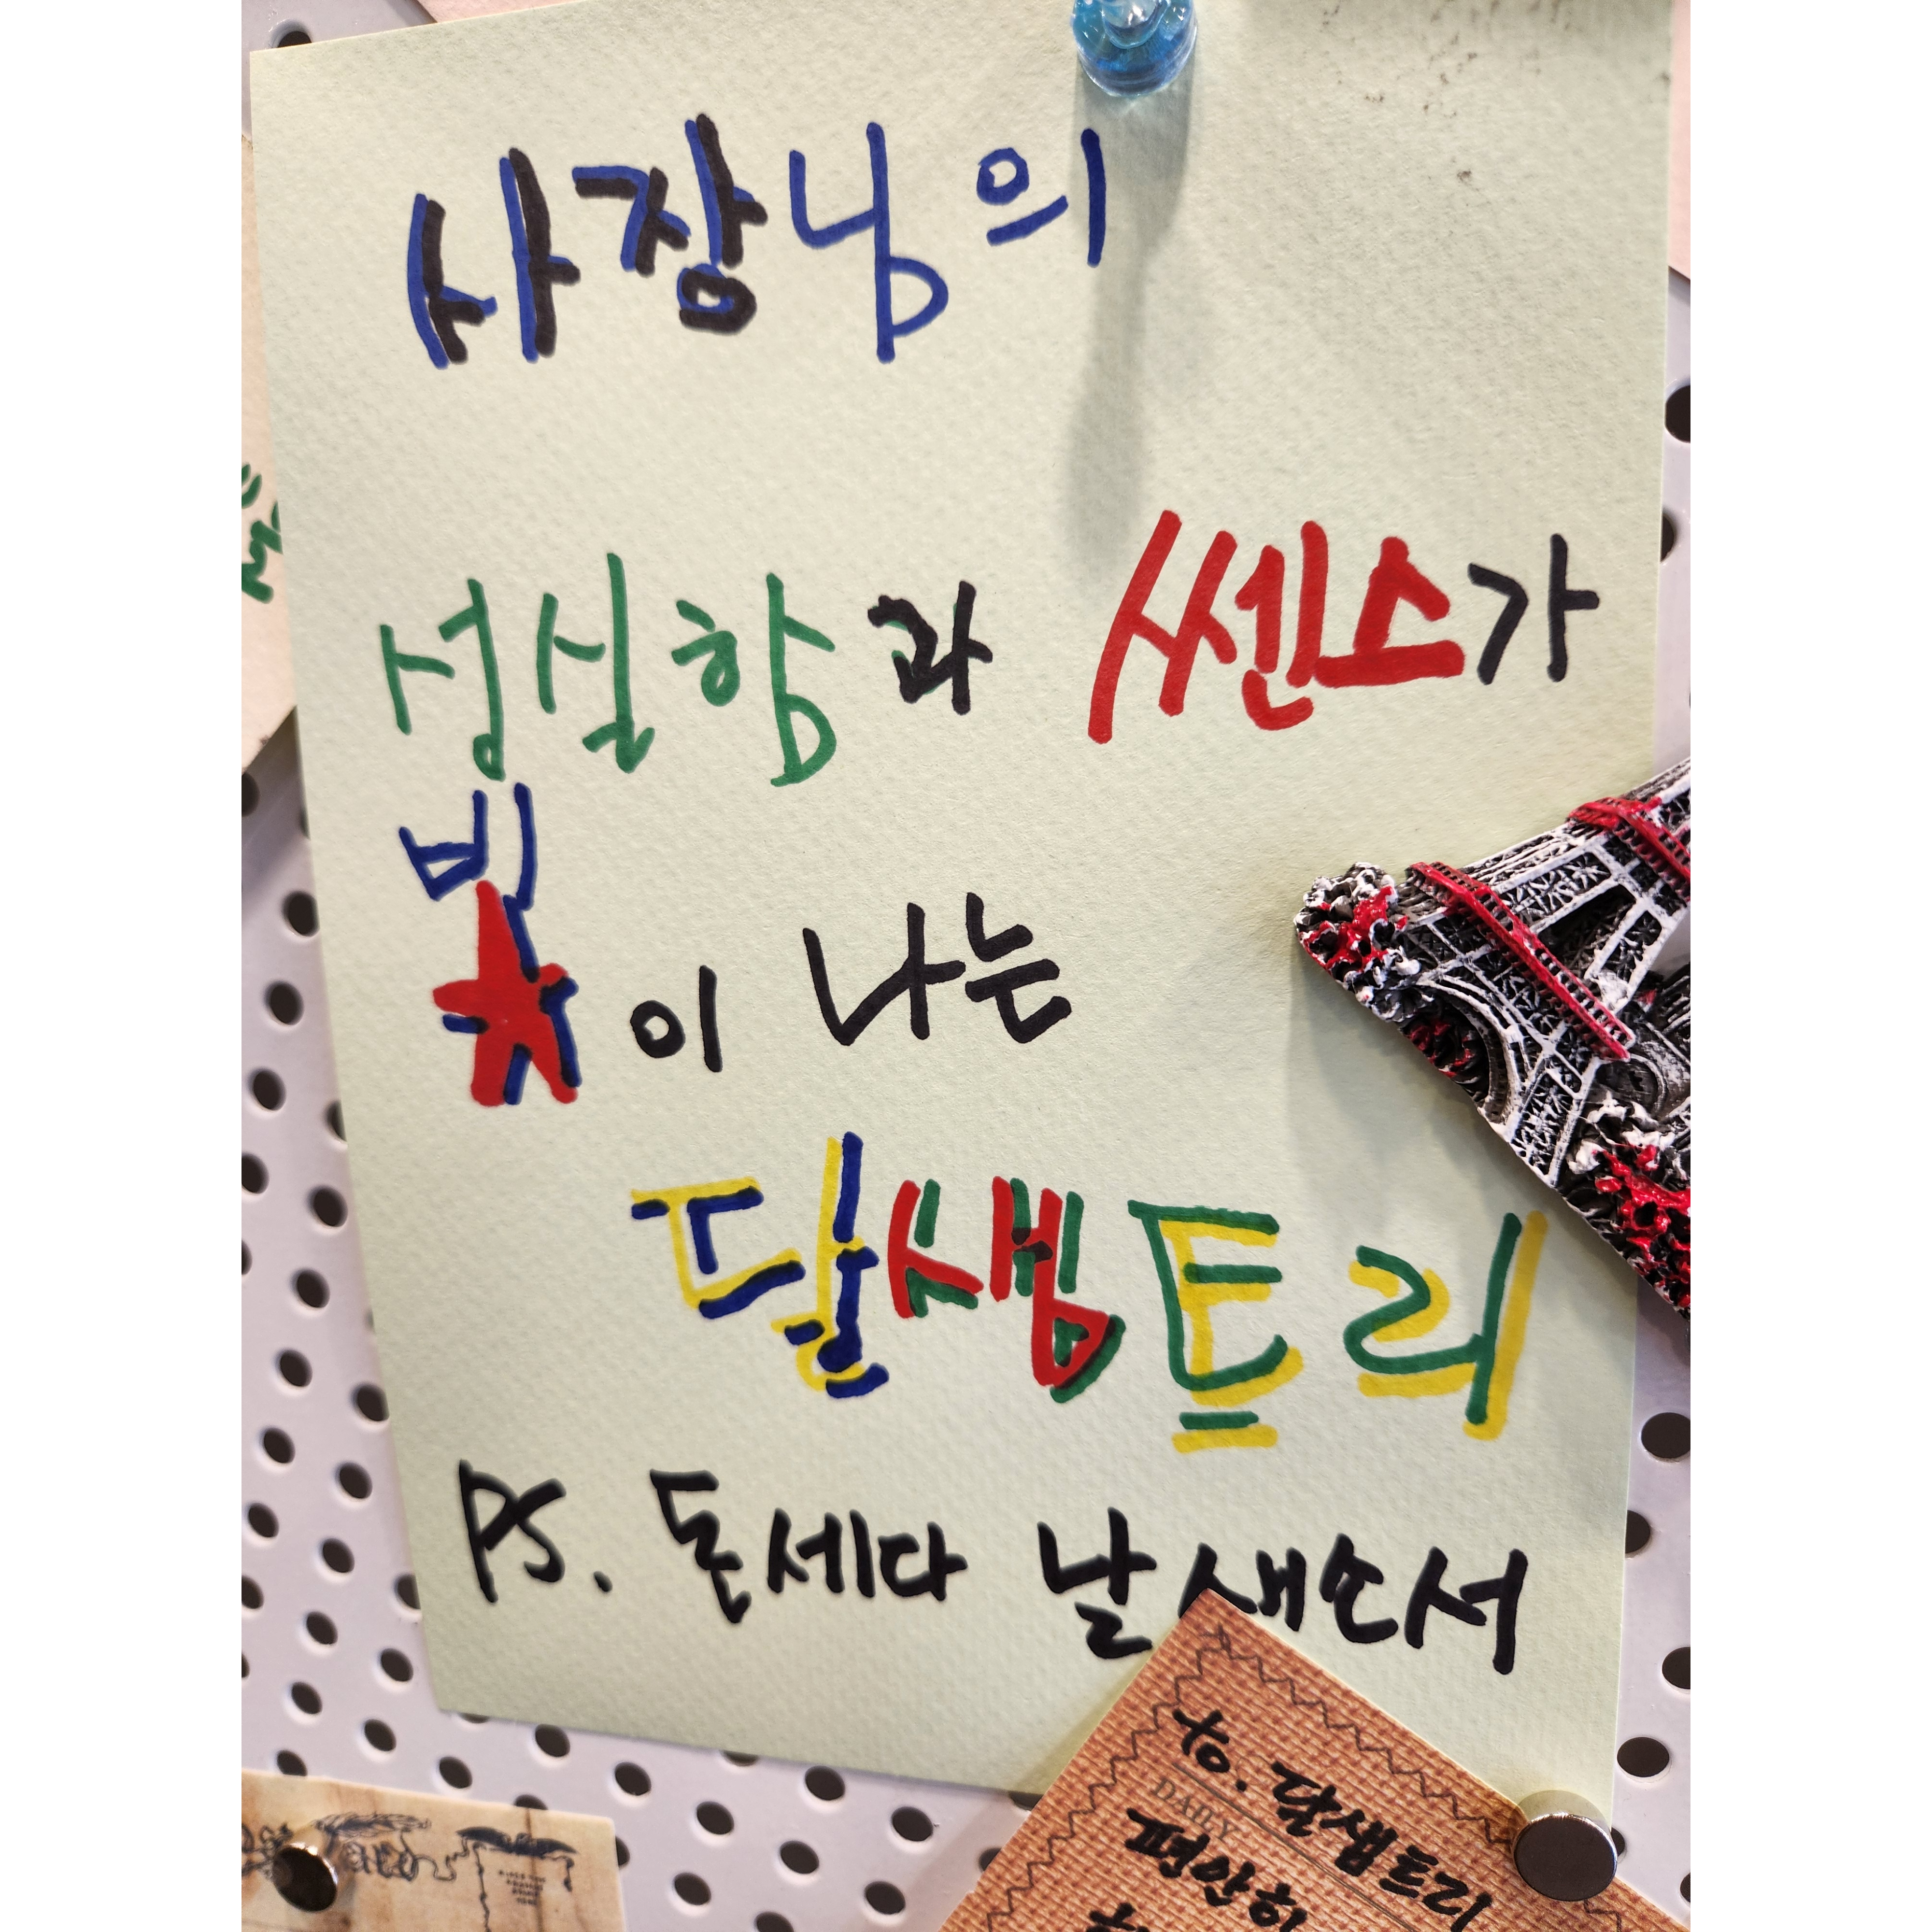 사장님의
성실함과 쎈스가
빛이 나는
달샘트리
PS. 돈세다 날새소서
to. 달샘트리
DAILY